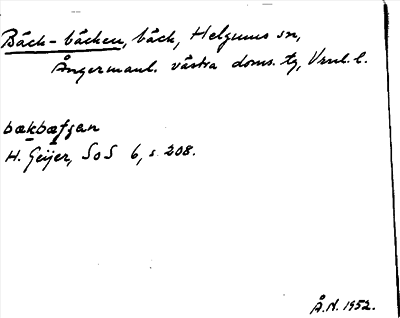 Bäck-bäcken, bäck, Helgums sn,
Ångermanl. västra doms. tg, Vrnl. l.
bækbæfqan
H. Geijer, SoS 6, s. 208.
Å.N. 1952.